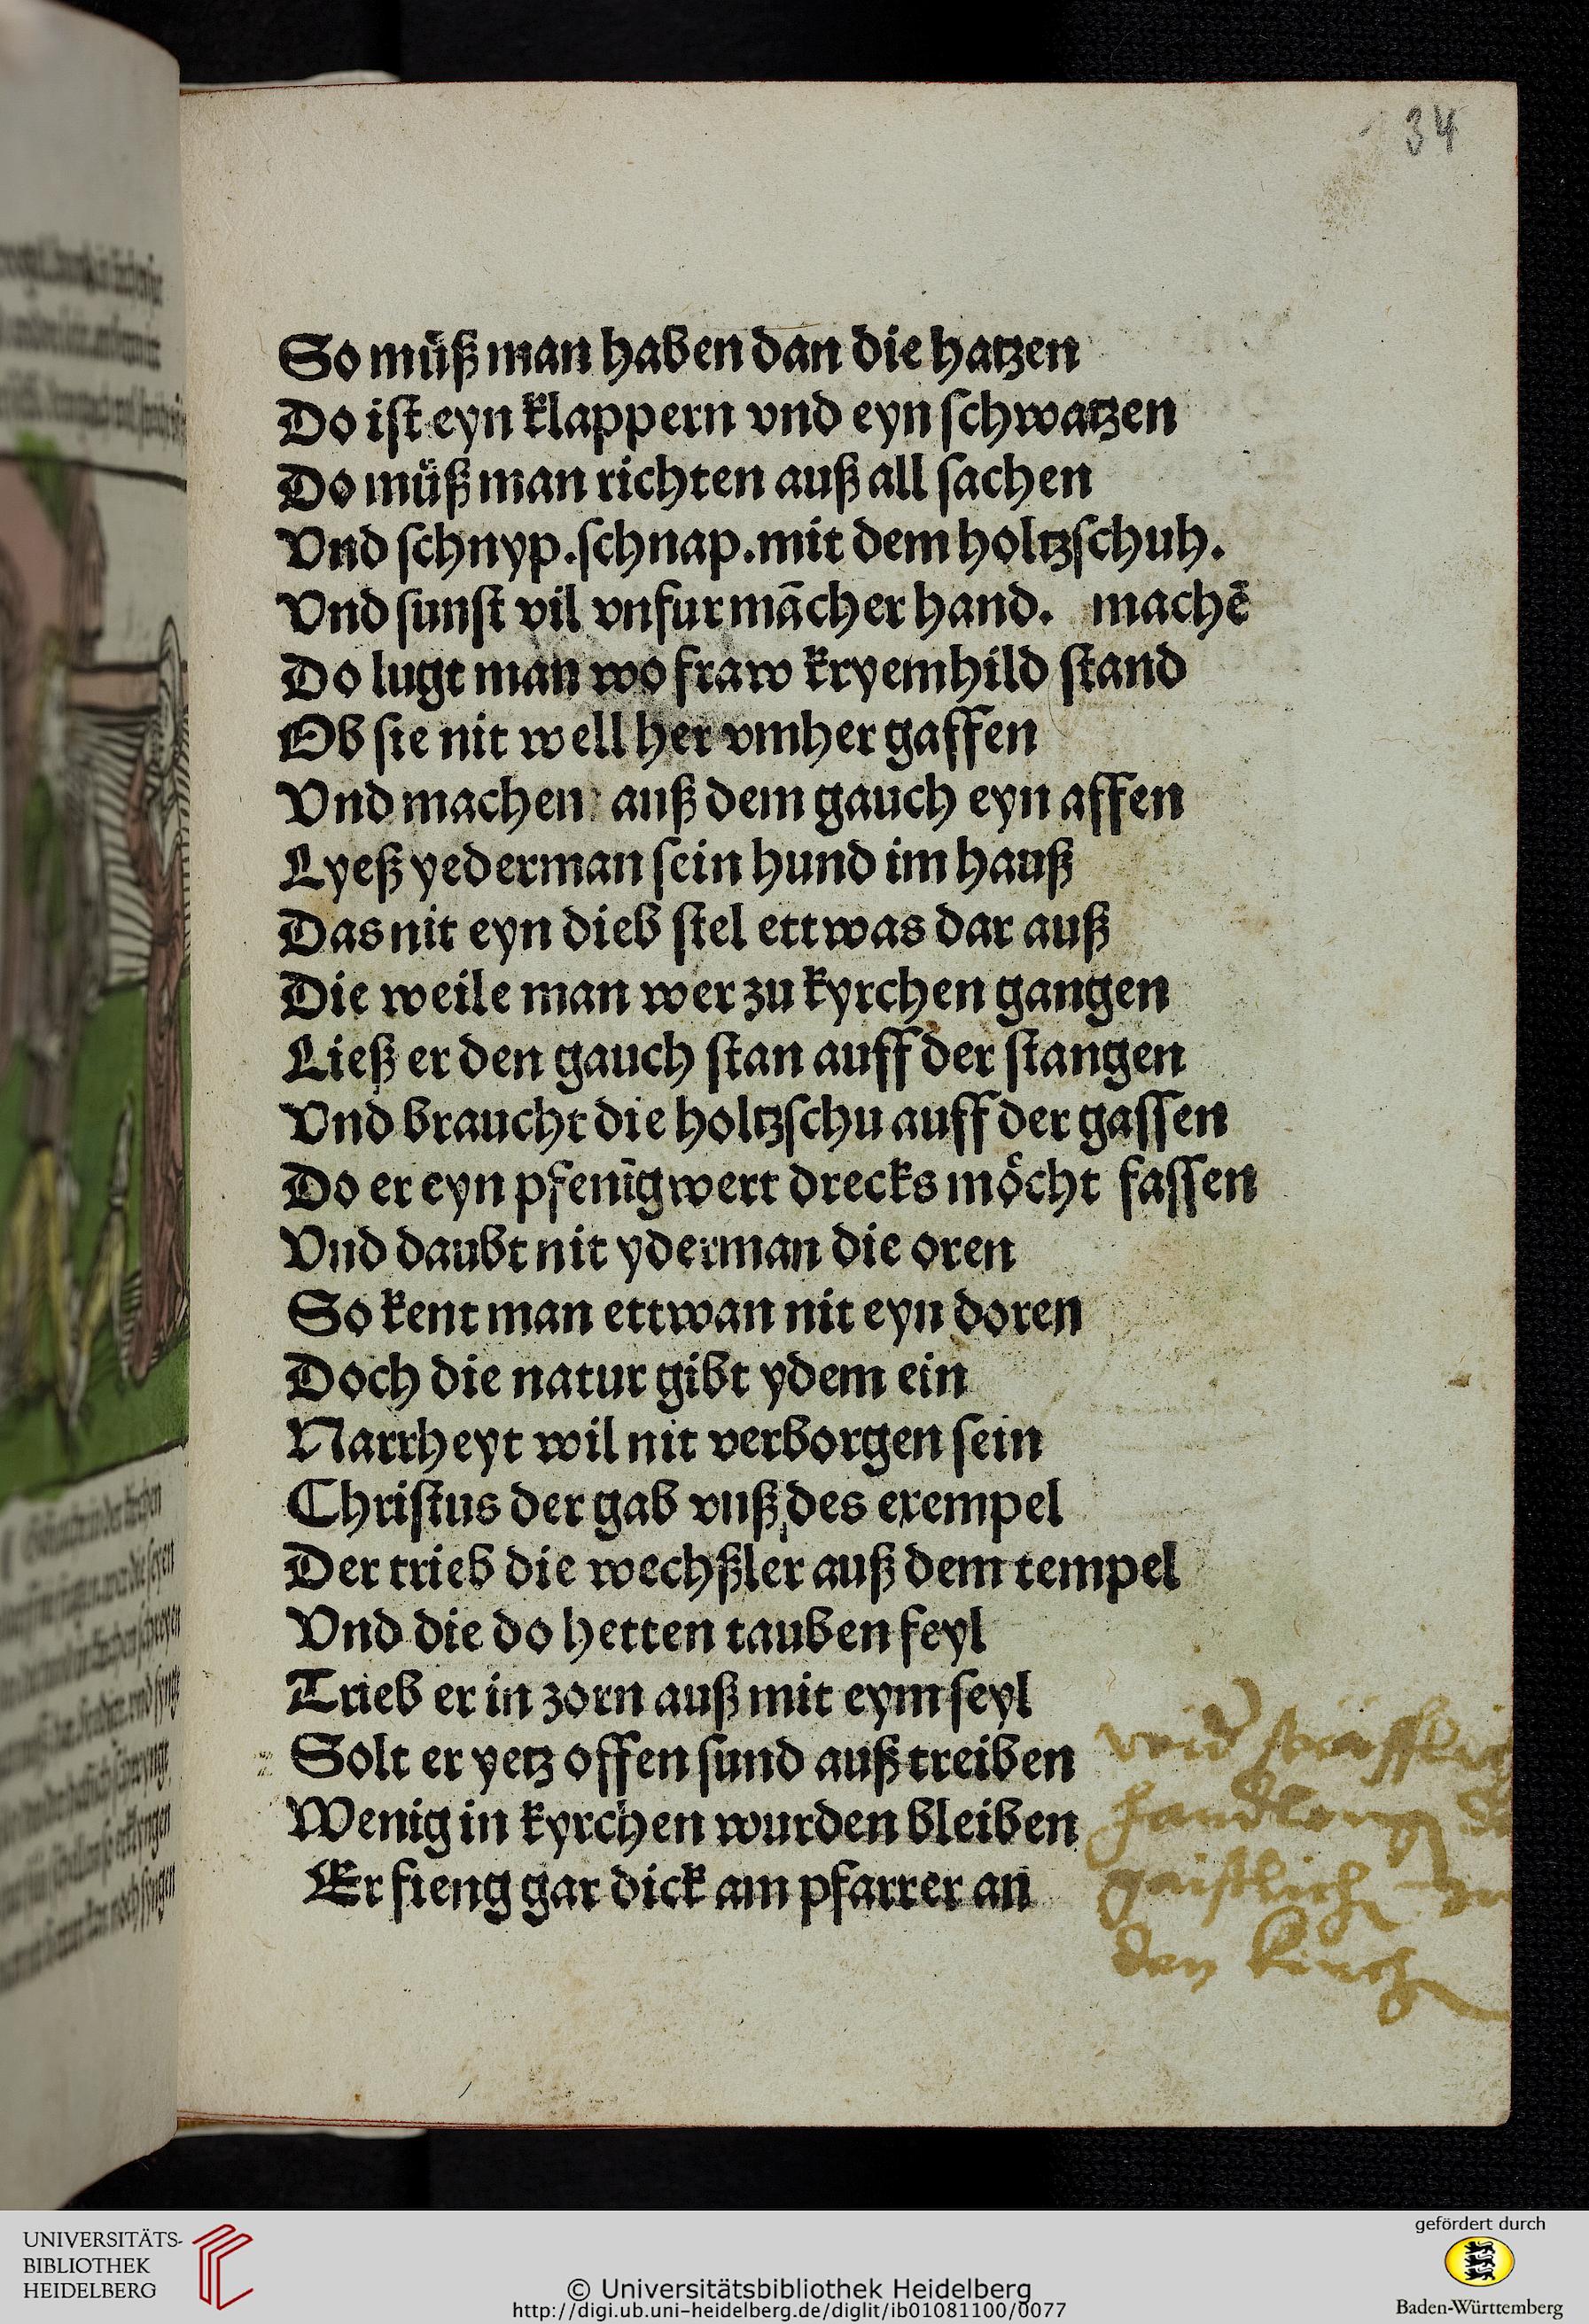 34
So müß man haben dan die hatzen
Do ist eyn klappern vnd eyn schwatzen
Do müß man richten auß all sachen
Vnd schnyp.schnap.mit dem holtzschuh.
Vnd sunst vil vnfur mācher hand. machē
Do lugt man wo fraw kryemhild stand
Ob sie nit well her vmher gaffen
Vnd machen auß dem gauch eyn affen
Lyeß yederman sein hund im hauß
Das nit eyn dieb stel ettwas dar auß
Die weile man wer zu kyrchen gangen
Ließ er den gauch stan auff der stangen
Vnd braucht die holtzschu auff der gassen
Do er eyn pfenīgwert drecks möcht fassen
Vnd daubt nit yderman die oren
So kent man ettwan nit eyn doren
Doch die natur gibt ydem ein
Narrheyt wil nit verborgen sein
Christus der gab vnß des exempel
Der trieb die wechßler auß dem tempel
Vnd die do hetten tauben feyl
Trieb er in zorn auß mit eym seyl
Solt er yetz offen sund auß treiben
Wenig in kyrchen wurden bleiben
Er fieng gar dick am pfarrer an
handlong
gaistlich
den kirch
UNIVERSITÄTS-
BIBLIOTHEK
HEIDELBERG
© Universitätsbibliothek Heidelberg
http://digi.ub.uni-heidelberg.de/diglit/ib01081100/0077
gefördert durch
Baden-Württemberg